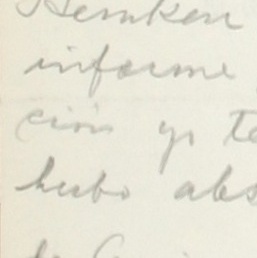 Hemken
informe
ción yo te
hubo abs